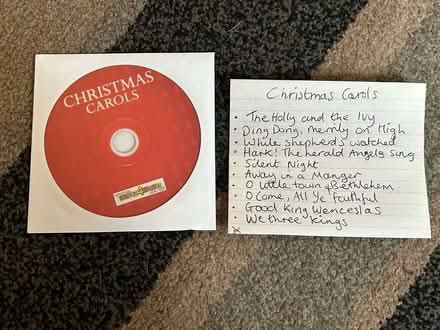 CHRISTMAS
CAROLS
Christmas Carols
• The Holly and the Ivy
• Ding Dong, merrily on High
• While shepherds watched
• Hark! The herald Angels Sing
• Silent Night
• Away in a Manger
• O little town of Bethlehem
• O Come, All Ye Faithful
• Good King Wenceslas
• We three kings
x